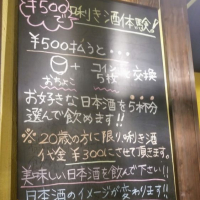 ¥500で
唎き酒体験!
¥500払うと・・・
+ コイン5枚 交換
おちょこ
お好きな日本酒を5杯分
選んで飲めます!!
※20歳の方に限り、唎き酒
代金¥300にさせて頂きます。
美味しい日本酒を飲んで下さい!!
日本酒のイメージが変わります!!